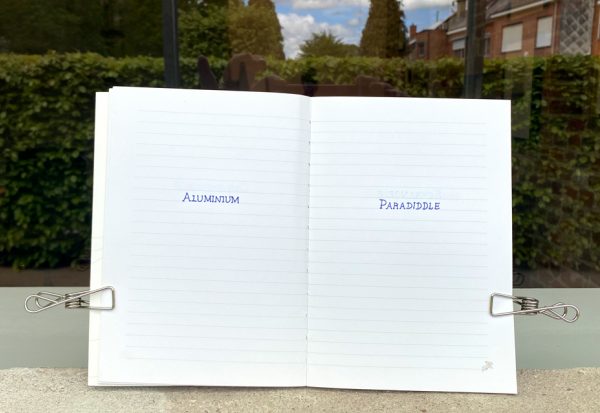 Aluminium
Paradiddle